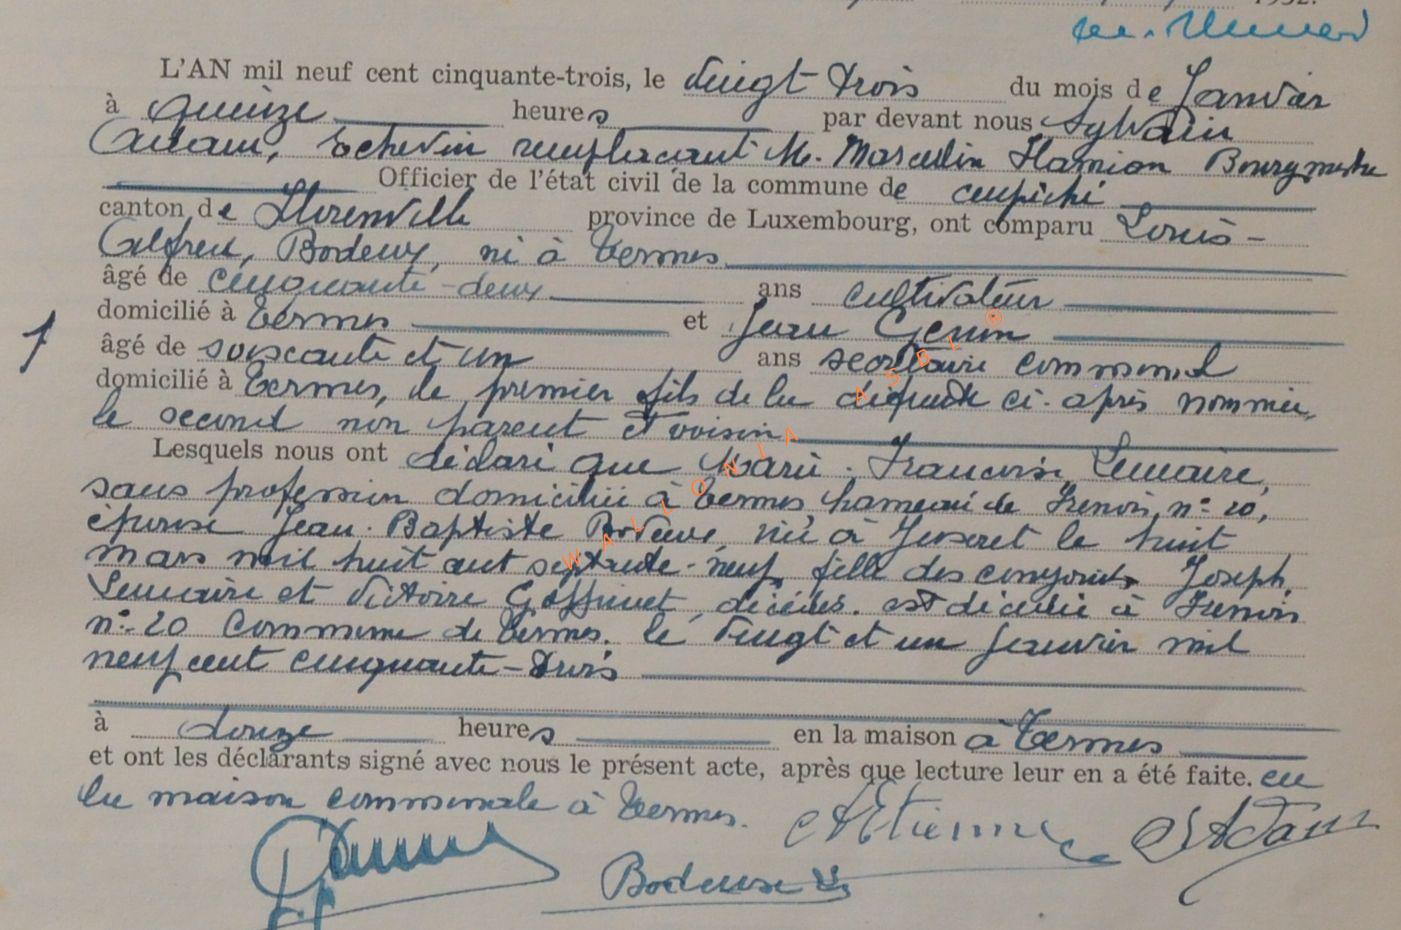 1952.
L'AN mil neuf cent cinquante-trois, le vingt trois du mois de Janvier
à quinze heures par devant nous Sylvain
Adam, Echevin remplaçant M. Marcellin Hamion Bourgmestre
Officier de l'état civil de la commune de empêché
canton de Florenville province de Luxembourg, ont comparu Louis-
Alfred, Bodeux, né à Termes
âgé de cinquante-deux ans cultivateur
domicilié à Termes et Jean Genin
1
âgé de soixante et un ans secrétaire communal
domicilié à Termes, le premier fils de la défunte ci-après nommée,
le second non parent et voisin
Lesquels nous ont déclaré que Marie-Françoise Lemaire,
sans profession domiciliée à Termes hameau de Frenois, n° 20,
épouse Jean-Baptiste Bodeux, née à Jusseret le huit
mars mil huit cent septante-neuf, fille des conjoints Joseph
Lemaire et Victoire Goffinet, décédés. est décédée à Frenois
n° 20 Commune de Termes. le vingt et un janvier mil
neuf cent cinquante-trois
à douze heures en la maison à Termes
et ont les déclarants signé avec nous le présent acte, après que lecture leur en a été faite. en
la maison communale à Termes.
Etienne SAdam
Bodeux
WALLONIA ASBL ©